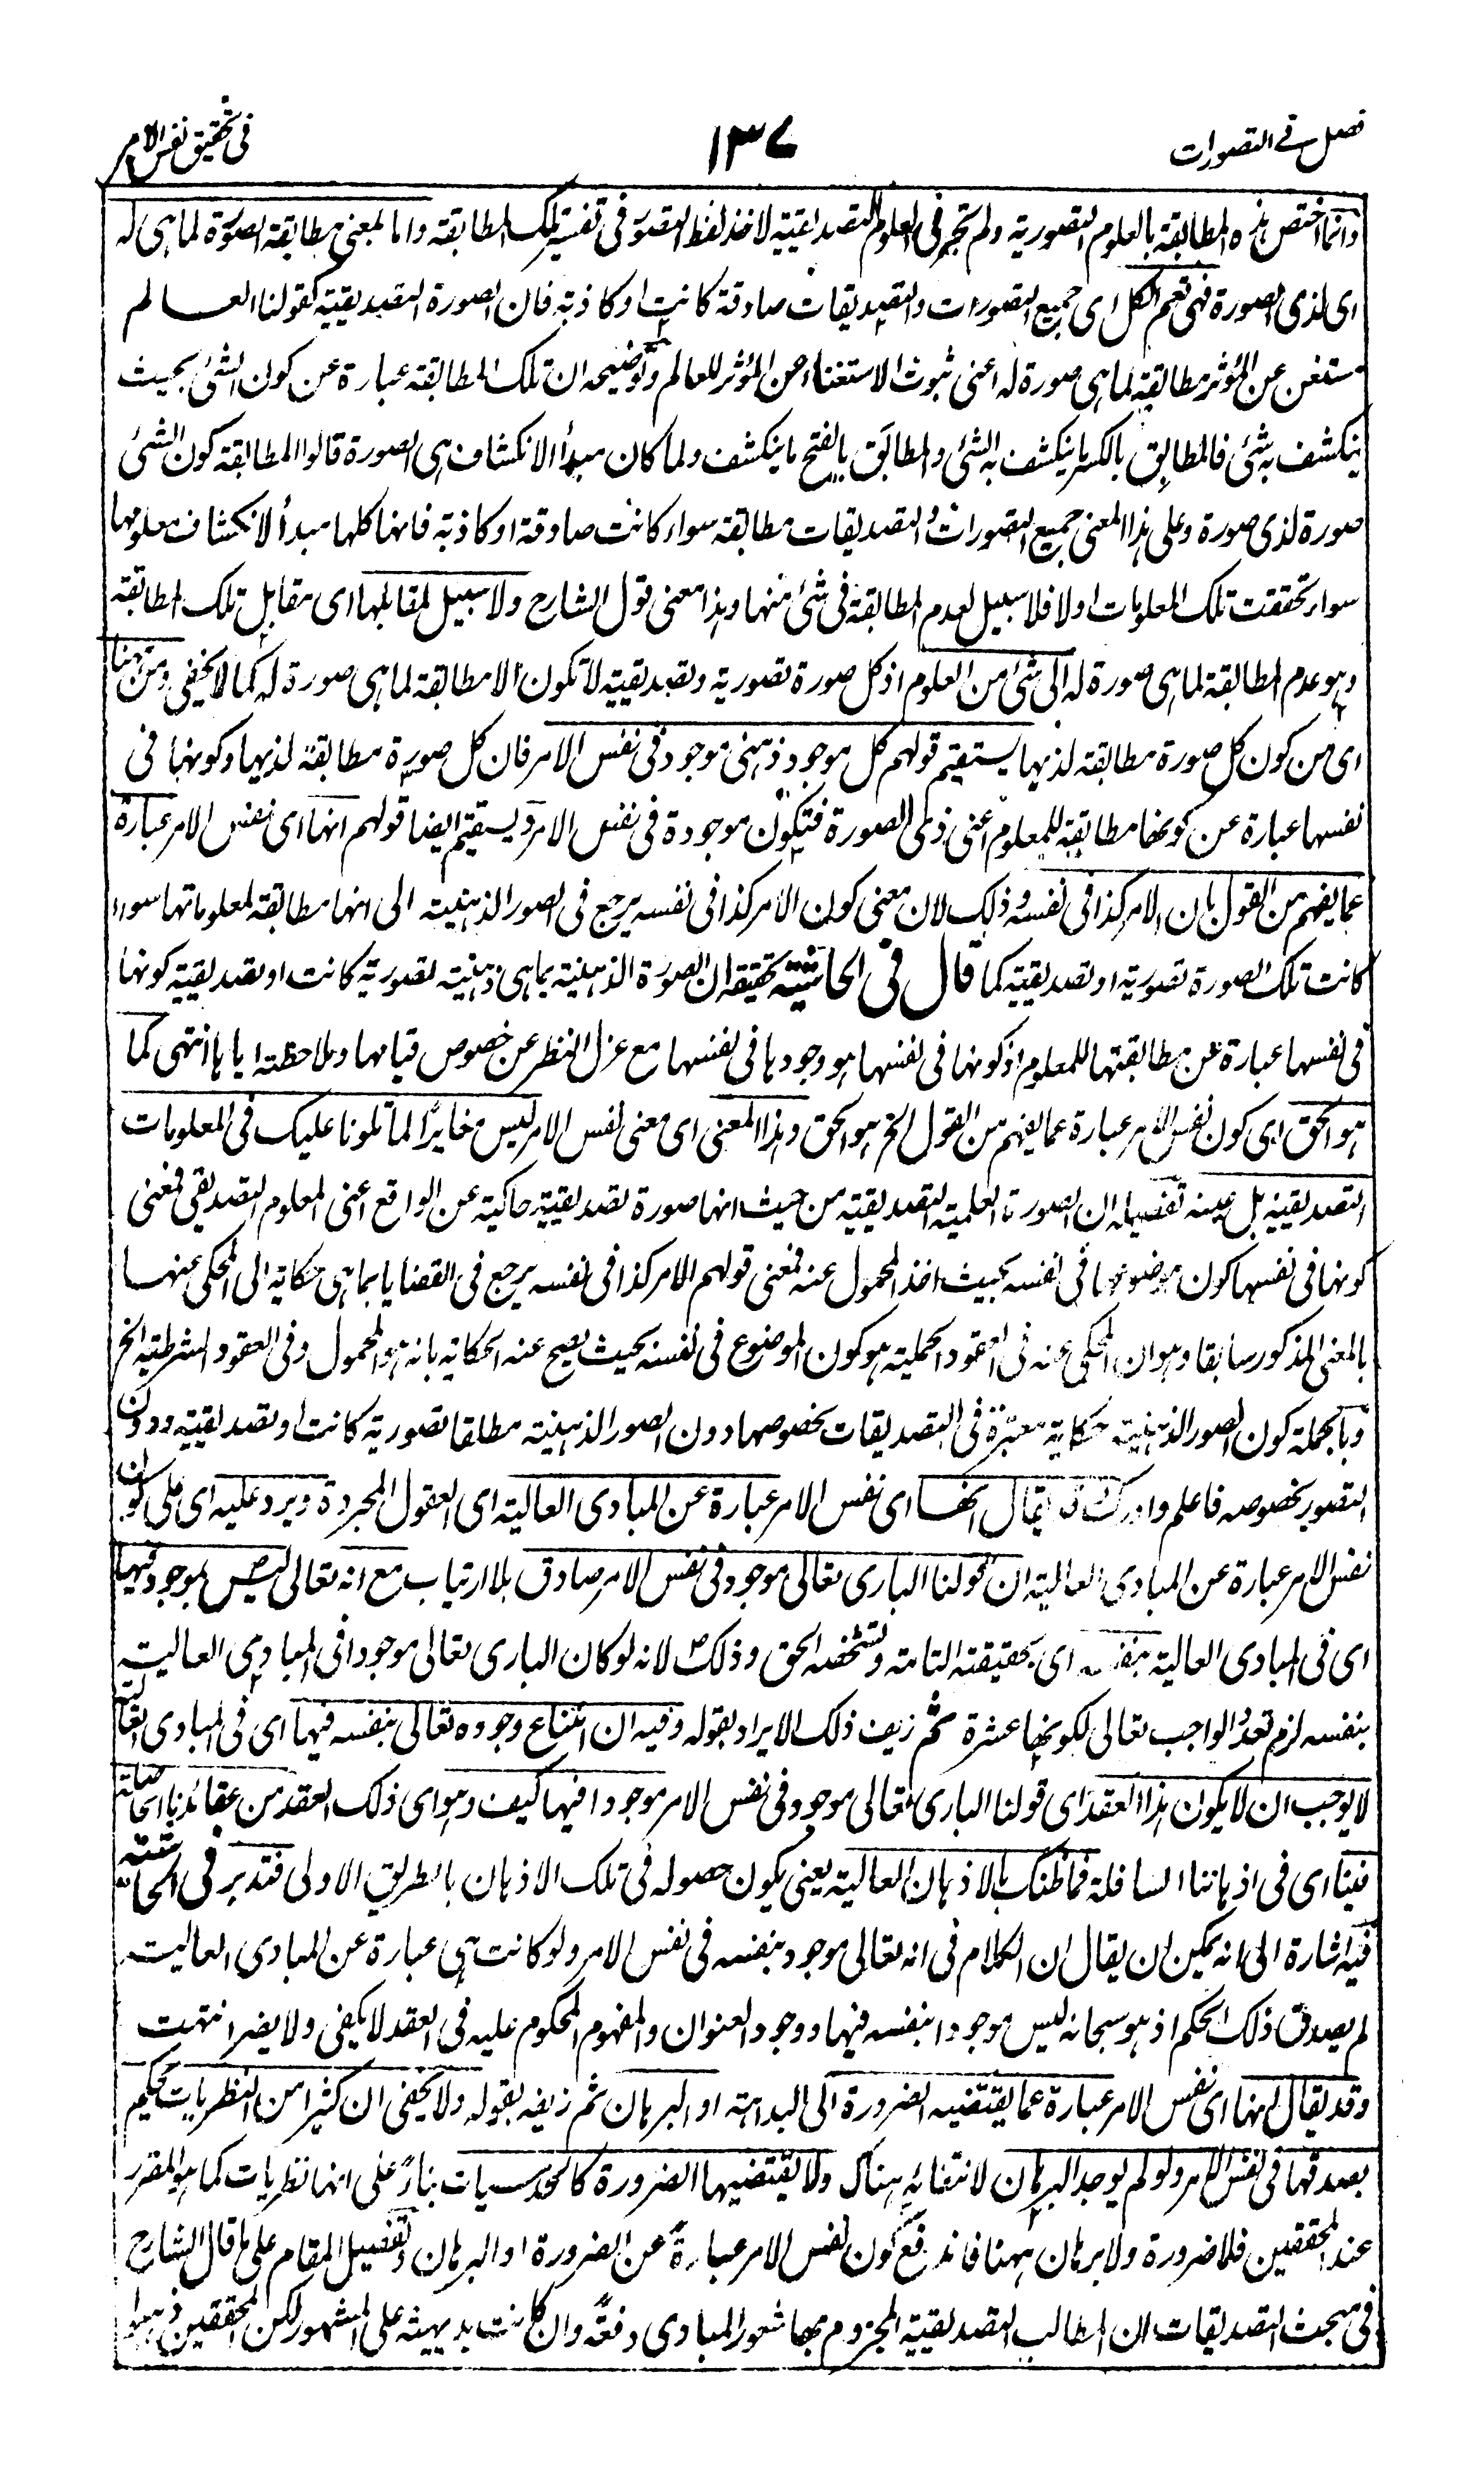 فصل في التصورات
١٣٧
في تحقيق نفس الامر
وانما اختص هذه المطابقة بالعلوم التصورية ولم تجر في العلوم التصديقية لاخذ لفظ التصور في تفسير تلك المطابقة واما المعنى مطابقة الصورة لما هي له
اى لذى الصورة فهى تعم الكل اى جميع التصورات والتصديقات صادقة كانت او كاذبة فان الصورة التصديقية كقولنا العالم
مستغن عن المؤثر مطابقة لما هى صورة له اعنى ثبوت الاستغناء عن المؤثر للعالم وتوضيحه ان تلك المطابقة عبارة عن كون الشئ بحيث
ينكشف به شئ فالمطابِق بالكسر ما ينكشف به الشئ والمطابَق بالفتح ما ينكشف ولما كان مبدأ الانكشاف هى الصورة قالوا المطابقة كون الشئ
صورة لذى صورة وعلى هذا المعنى جميع التصورات والتصديقات مطابقة سواء كانت صادقة او كاذبة فانها كلها مبدأ لانكشاف معلومها
سواء تحققت تلك المعلومات او لا فلا سبيل لعدم المطابقة فى شئ منها وهذا معنى قول الشارح ولا سبيل لمقابلها اى مقابل تلك المطابقة
وهو عدم المطابقة لما هى صورة له الى شئ من العلوم اذ كل صورة تصورية وتصديقية لا تكون الا مطابقة لما هى صورة له كما لا يخفى ومن ههنا
اى من كون كل صورة مطابقة لذيها يستقيم قولهم كل موجود ذهنى موجود فى نفس الامر فان كل صورة مطابقة لذيها وكونها فى
نفسها عبارة عن كونها مطابقة للمعلوم اعنى ذى الصورة فتكون موجودة فى نفس الامر ويستقيم ايضا قولهم انها اى نفس الامر عبارة
عما يفهم من القول بان الامر كذا فى نفسه وذلك لان معنى كون الامر كذا فى نفسه يرجع فى الصور الذهنية الى انها مطابقة لمعلوماتها سواء
كانت تلك الصورة تصورية او تصديقية كما قال فى الحاشية تحقيقه ان الصورة الذهنية بما هى ذهنية تصورية كانت او تصديقية كونها
فى نفسها عبارة عن مطابقتها للمعلوم اذ كونها فى نفسها هو وجودها فى نفسها مع عزل النظر عن خصوص قيامها وملاحظته اياها انتهى كما
هو الحق اى كون نفس الامر عبارة عما يفهم من القول الخ هو الحق وهذا المعنى اى معنى نفس الامر ليس مغايرًا لما تلونا عليك فى المعلومات
التصديقية بل عينه تفصيله ان الصورة العلمية التصديقية من حيث انها صورة تصديقية حاكية عن الواقع اعنى المعلوم التصديقى فمعنى
كونها فى نفسها كون موضوعها فى نفسه بحيث اخذ المحمول عنه فمعنى قولهم الامر كذا فى نفسه يرجع فى القضايا بما هى حكاية الى المحكى عنها
بالمعنى المذكور سابقا وهو ان المحكى عنه فى العقود الحملية هو كون الموضوع فى نفسه بحيث يصح عنه الحكاية بانه هو المحمول وفى العقود الشرطية الخ
وبالجملة كون الصور الذهنية حكاية معتبرة فى التصديقات بخصوصها دون الصور الذهنية مطلقا تصورية كانت او تصديقية ودون
التصور بخصوصه فاعلم وادرك قد يقال انها اى نفس الامر عبارة عن المبادى العالية اى العقول المجردة ويرد عليه اى على كون
نفس الامر عبارة عن المبادى العالية ان قولنا البارى تعالى موجود فى نفس الامر صادق بلا ارتياب مع انه تعالى ليس بموجود فيها
اى فى المبادى العالية بنفسه اى بحقيقته التامة وتشخصه الحق وذلك لانه لو كان البارى تعالى موجودا فى المبادى العالية
بنفسه لزم تعدد الواجب تعالى لكونها عشرة ثم زيف ذلك الايراد بقوله وفيه ان امتناع وجوده تعالى بنفسه فيها اى فى المبادى العالية
لا يوجب ان لا يكون هذا العقد اى قولنا البارى تعالى موجود فى نفس الامر موجودا فيها كيف وهو اى ذلك العقد من عقائدنا الحاصلة
فينا اى فى اذهاننا السافلة فما ظنك بالاذهان العالية يعنى يكون حصوله فى تلك الاذهان بالطريق الاولى فتدبر فى الحاشية
فيه اشارة الى انه يمكن ان يقال ان الكلام فى انه تعالى موجود بنفسه فى نفس الامر ولو كانت هى عبارة عن المبادى العالية
لم يصدق ذلك الحكم اذ هو سبحانه ليس موجودا بنفسه فيها ووجود العنوان والمفهوم المحكوم عليه فى العقد لا يكفى ولا يضر انتهت
وقد يقال انها اى نفس الامر عبارة عما يقتضيه الضرورة اى البداهة او البرهان ثم زيفه بقوله ولا يخفى ان كثيرا من النظريات يحكم
بصدقها فى نفس الامر ولو لم يوجد البرهان لانتفائه هناك ولا يقتضيها الضرورة كالحدسيات بناءً على انها نظريات كما هو المقرر
عند المحققين فلا ضرورة ولا برهان ههنا فاندفع كون نفس الامر عبارةً عن الضرورة او البرهان وتفصيل المقام على ما قال الشارح
فى مبحث التصديقات ان المطالب التصديقية المجزوم بها شعور المبادى دفعةً وان كانت بديهية على المشهور لكن المحققين ذهبوا